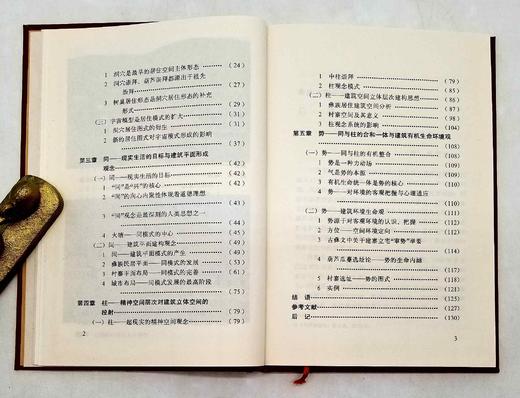 1 洞穴是最早的居住空间主体形态 (24)
2 洞穴崇拜、葫芦崇拜都源出于祖先
崇拜 (27)
3 树巢居住形态是洞穴居住形态的补充
形式 (27)
(三)宇宙模型是居住模式的扩大 (31)
1 洞穴居住图式的衍生 (31)
2 新的居住图式对宇宙模式形成的影响
(37)
第三章 同——现实生活的目标与建筑平面形成
观念 (42)
(一)同——现实生活的目标 (42)
1 的核心 (42)
的向心内聚性体现着道德理想
(42)
观念是最深刻的人类思想之一
4 火塘——同模式的中心
(二)同——建筑平面建构观念
1 同——建筑平面模式的产生
2 彝族民居平面——同模式的发展
3 村寨平面布局——同模式的完善
4 城市布局——同模式发展的最高阶段
第四章 柱——精神空间层次对建筑立体空间的
投射 (79)
(一)柱——超现实的精神空间观念 (79)
2
1 中柱崇拜 (79)
2 柱观念模式
(二)柱——建筑空间立体层次建构思想
1 彝族居住建筑空间分析
2 村寨空间及其意义
3 柱观念系统的影响 (104)
第五章 势——同与柱的合和一体与建筑有机生命环境观
(108)
(一)势——同与柱的有机整合 (108)
1 势是一种力动场 (108)
2 气是势的本源
3 有机生命统一体是势的核心
4 势——对环境的客观把握与心理适应
(二)势——建筑环境生命观
1 势源于对客观环境的认识、把握
2 方位——空间环境定向
3 古彝文中关于建寨立宅
4 葫芦瓜蔓选址论——势的生命内涵
5 村寨选址——势的图式
6 实例
结语 (125)
参考文献 (127)
后记 (130)
3